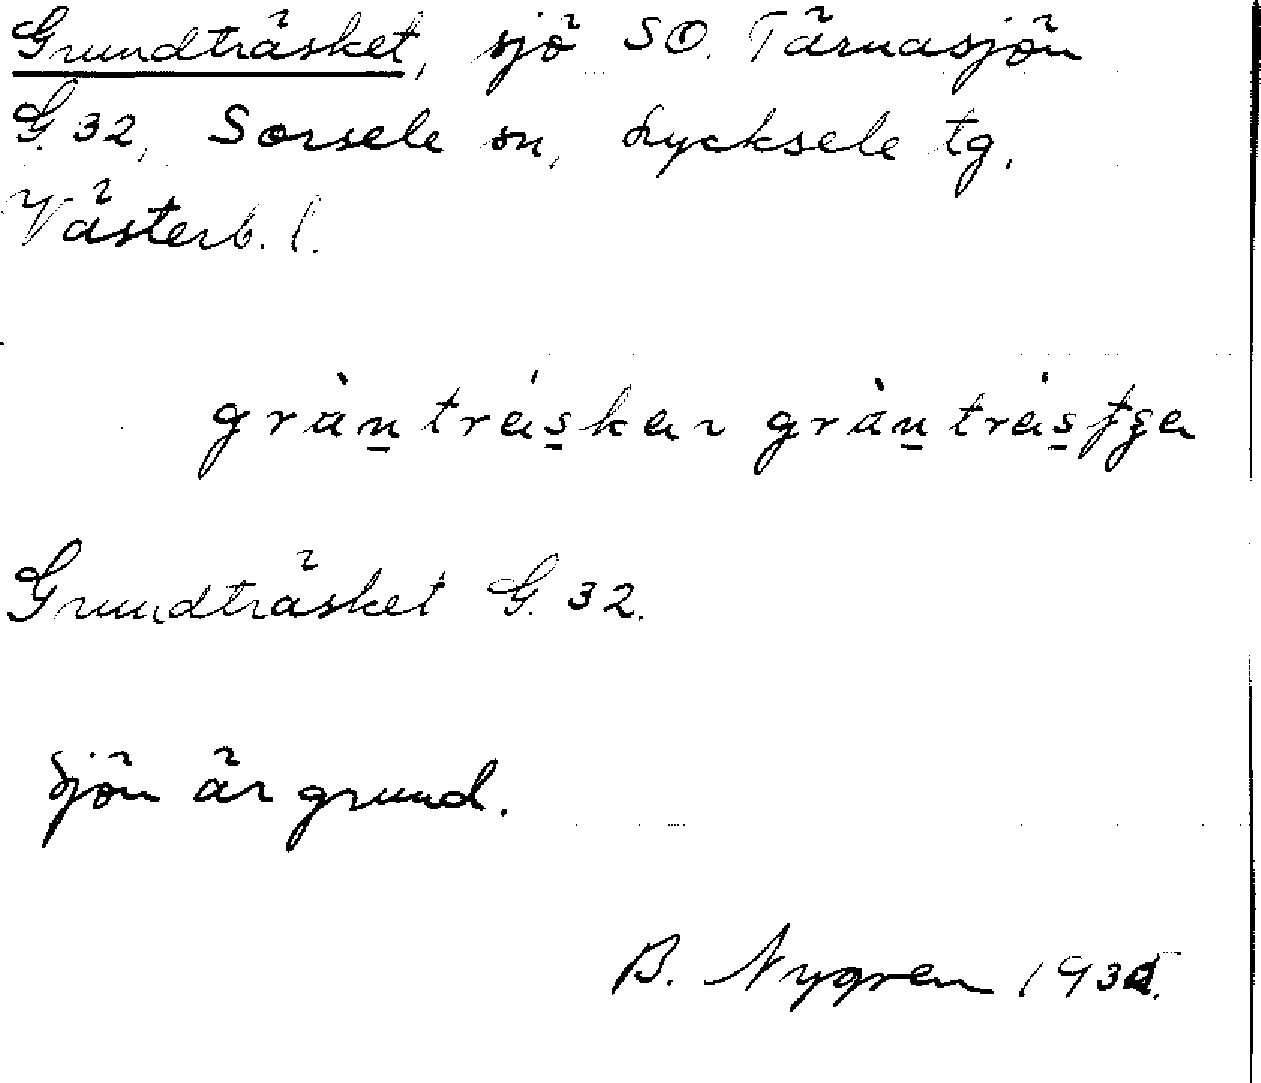 Grundträsket, sjö SO. Tärnasjön
G. 32, Sorsele sn, Lycksele tg.
Västerb. l.
Grundträsket G. 32.
Sjön är grund.
B. Nygren